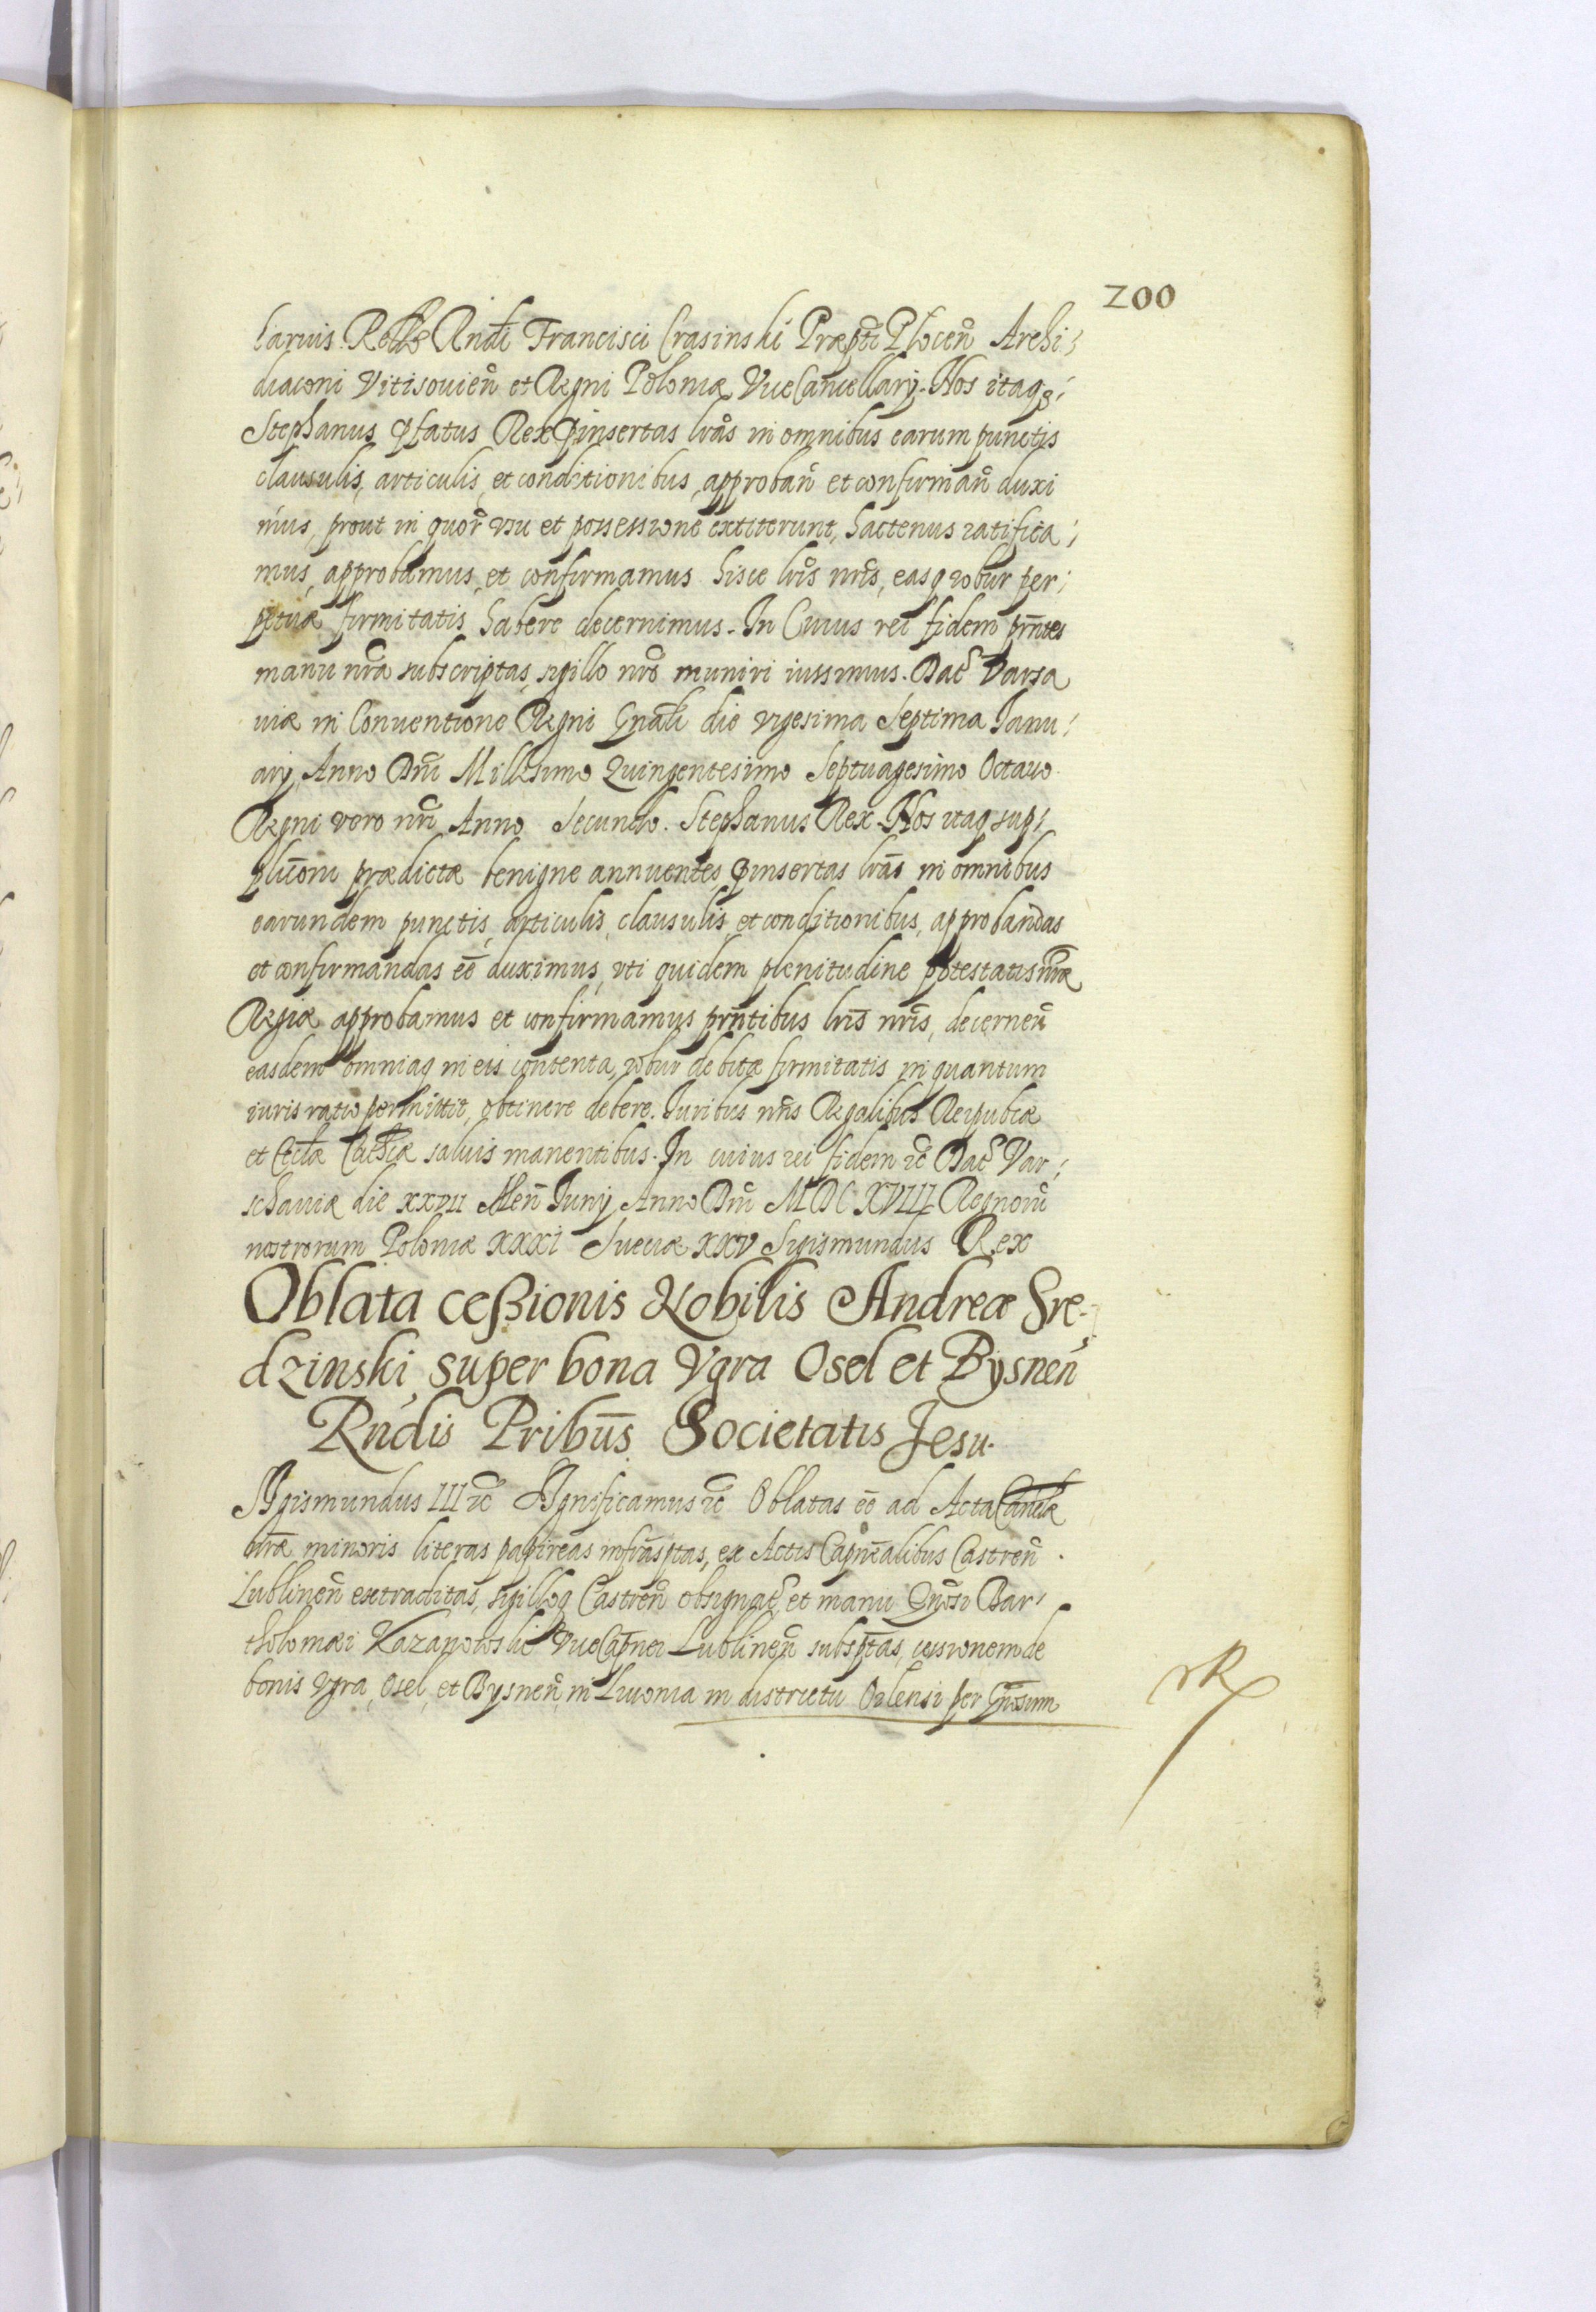 200
harvis. Rndi Francisci Crasinski Præpti Plocen̄ Archi;
diaconi Vitisouien̄ et Regni Poloniæ ViceCancellarÿ. Nos itaq₃;
Stephanus p̄fatus Rex p̄insertas lrās in omnibus earum punctis
clausulis, articulis, et conditionibus, approban̄ et confirman̄ duxi
mus, prout in quor̄ vsu et possessione extiterunt, hactenus ratifica;
mus, approbamus, et confirmamus hisce lrīs nrīs, easq robur per;
petuæ firmitatis habere decernimus. In Cuius rei fidem pr̄ntes
manu nr̄a subscriptas, sigillo nr̄o muniri iussimus. Dat Varsa
uiæ in Conuentione Regni Gn̄ali die vigesima Septima Janu;
arÿ, Anno Dn̄i Millesimo Quingentesimo Septuagesimo Octauo
Regni vero nr̄i Anno Secundo. Stephanus Rex Nos itaq sup;
plicōni prædictæ benigne annuentes p̄insertas lrās in omnibus
earundem punctis, articulis, clausulis, et conditionibus, approbandas
et confirmandas eē duximus, vti quidem plenitudine potestatis nr̄æ
Regiæ approbamus et confirmamus prn̄tibus lrīs nrīs, decernen̄
easdem omniaq in eis contenta, robur debitæ firmitatis in quantum
iuris ratio permittit, obtinere debere. Juribus nr̄is Regalibus Reipubcæ
et Eccliæ Cathcæ saluis manentibus. In cuius rei fidem rc̄ Dat Var;
schauiæ die XXVII Men̄ Junÿ Anno Dn̄i MDCXVIII Regnorū
nostrorum Poloniæ XXXI Sueciæ XXV Sigismundus Rex
Oblata ceßionis Nobilis Andreæ Sre-
dzinski, super bona Vgra Osel et Bysnen̄
Rn̄dis Pribus̄ Societatis Jesu.
Sigismundus III rc̄ Significamus rc̄ Oblatas eē ad Acta Cancˡæ
nr̄æ minoris literas papireas infrasptas, ex Actis Capnēalibus Castren̄
Lublinen̄ extraditas, sigilloq Castren̄ obsignat, et manu Gn̄osi Bar;
tholomæi Kazanowski ViceCapnei Lublinen̄ subsptas, cessionem de
bonis Vgra, Osel, et Bysnen̄, in Liuonia in districtu Orlensi per Gn̄osum